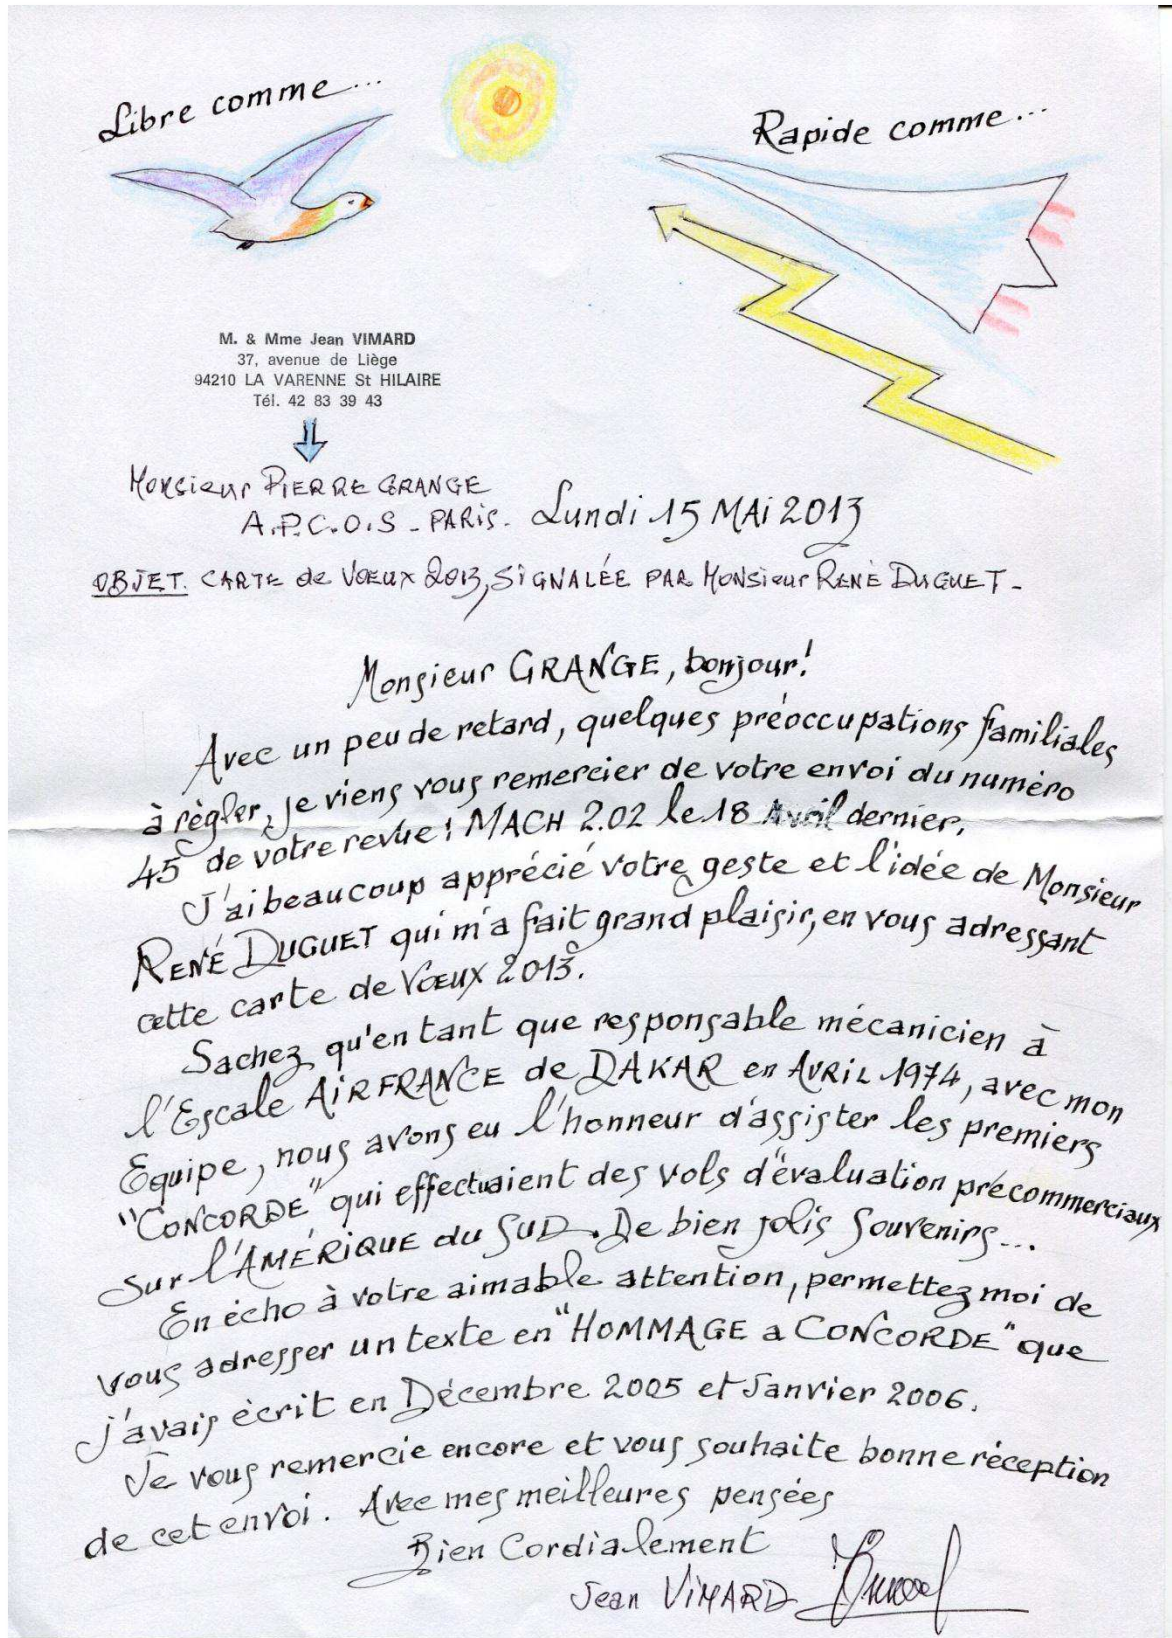 Libre comme...
Rapide comme...
M. & Mme Jean VIMARD
37, avenue de Liège
94210 LA VARENNE St HILAIRE
Tél. 42 83 39 43
Monsieur PIERRE GRANGE
A.P.C.O.S - PARIS. Lundi 15 MAI 2013
OBJET. CARTE de VŒUX 2013, SIGNALÉE PAR MONSIEUR RENÉ DUGUET -
Monsieur GRANGE, bonjour!
Avec un peu de retard, quelques préoccupations familiales
à règler, je viens vous remercier de votre envoi du numéro
45 de votre revue! MACH 2.02 le 18 Avril dernier.
J'ai beaucoup apprécié votre geste et l'idée de Monsieur
RENÉ DUGUET qui m'a fait grand plaisir, en vous adressant
cette carte de Vœux 2013.
Sachez qu'en tant que responsable mécanicien à
l'Escale AIR FRANCE de DAKAR en AVRIL 1974, avec mon
Equipe, nous avons eu l'honneur d'assister les premiers
"CONCORDE" qui effectuaient des vols d'évaluation précommerciaux
sur l'AMÉRIQUE du SUD. De bien jolis Souvenirs...
En écho à votre aimable attention, permettez moi de
vous adresser un texte en "HOMMAGE a CONCORDE" que
j'avais écrit en Décembre 2005 et Janvier 2006.
Je vous remercie encore et vous souhaite bonne réception
de cet envoi. Avec mes meilleures pensées
Bien Cordialement
Jean VIMARD